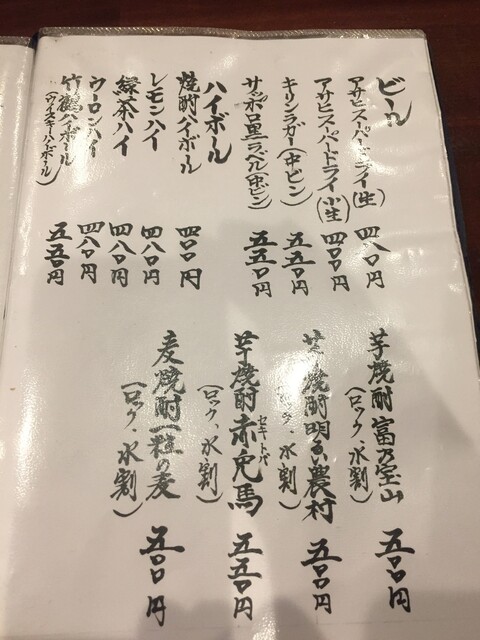 ビール
アサヒスーパードライ(生) 四八〇円
アサヒスーパードライ(小生) 四〇〇円
キリンラガー(中ビン) 五五〇円
サッポロ黒ラベル(中ビン) 五五〇円
ハイボール
焼酎ハイボール 四〇〇円
レモンハイ 四八〇円
緑茶ハイ 四八〇円
ウーロンハイ 四八〇円
竹鶴ハイボール 五五〇円
(ウイスキーハイボール)
芋焼酎富乃宝山
(ロック、水割) 五〇〇円
芋焼酎明るい農村
(ロック、水割) 五〇〇円
芋焼酎赤兎馬
セキトバ
(ロック、水割) 五五〇円
麦焼酎一粒の麦
(ロック、水割) 五〇〇円